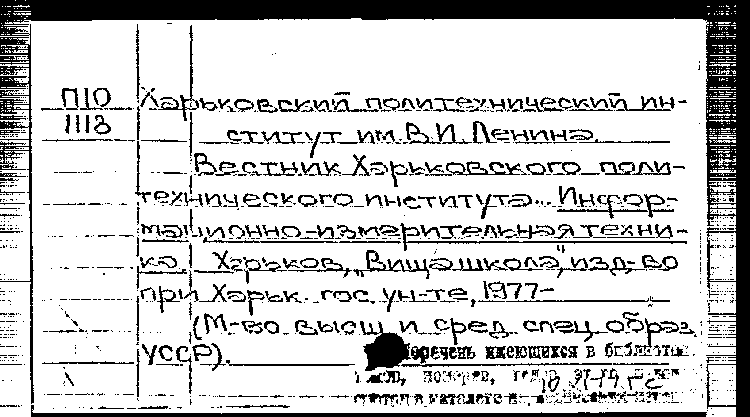 П10 Харьковский политехнический ин-
1113 ститут им. В.И. Ленина.
Вестник Харьковского поли-
технического института... Инфор-
мационно-измерительная техни-
ка. Харьков, „Вища школа", изд-во
при Харьк. гос. ун-те, 1977-
(М-во высш и сред. спец. образ.
УССР).
перечень имеющихся в библиотеке